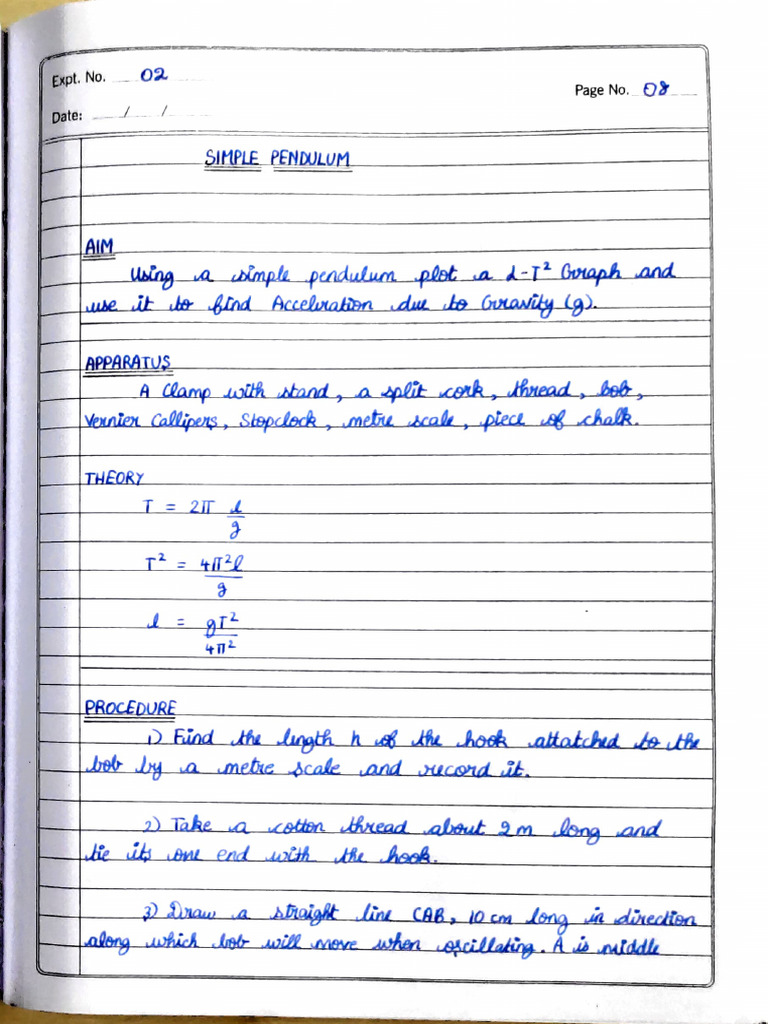 Expt. No. 02
Page No. 08
Date: / /
SIMPLE PENDULUM
AIM
Using a simple pendulum plot a L-T² Graph and
use it to find Acceleration due to Gravity (g).
APPARATUS
A Clamp with stand, a split cork, thread, bob,
Vernier Callipers, Stopclock, metre scale, piece of chalk.
THEORY
T = 2π l/g
T² = 4π²l/g
l = gT²/4π²
PROCEDURE
1) Find the length h of the hook attatched to the
bob by a metre scale and record it.
2) Take a cotton thread about 2m long and
tie its one end with the hook.
3) Draw a straight line CAB, 10 cm long in direction
along which bob will move when oscillating. A is middle